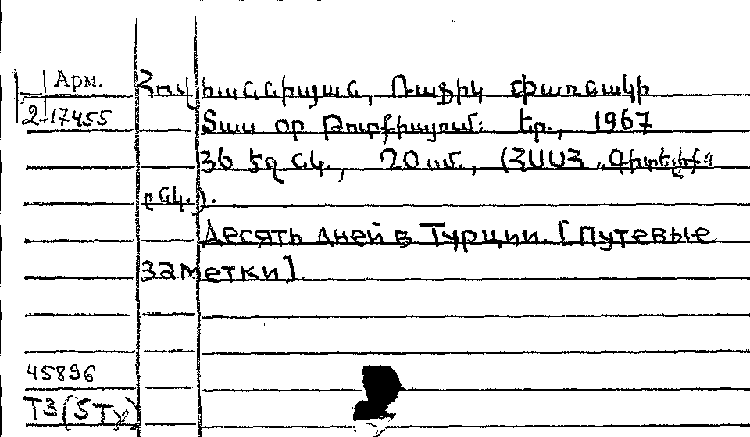 Арм.
2-17455
Հովհաննիսյան, Ռաֆիկ Փառնակի
Տաս օր Թուրքիայում: Եր., 1967
36 էջ նկ., 20 սմ., (ՀՍՍՀ „Գիտելիք"
ընկ.).
Десять дней в Турции. [Путевые
заметки].
45896
Т3(5Ту)